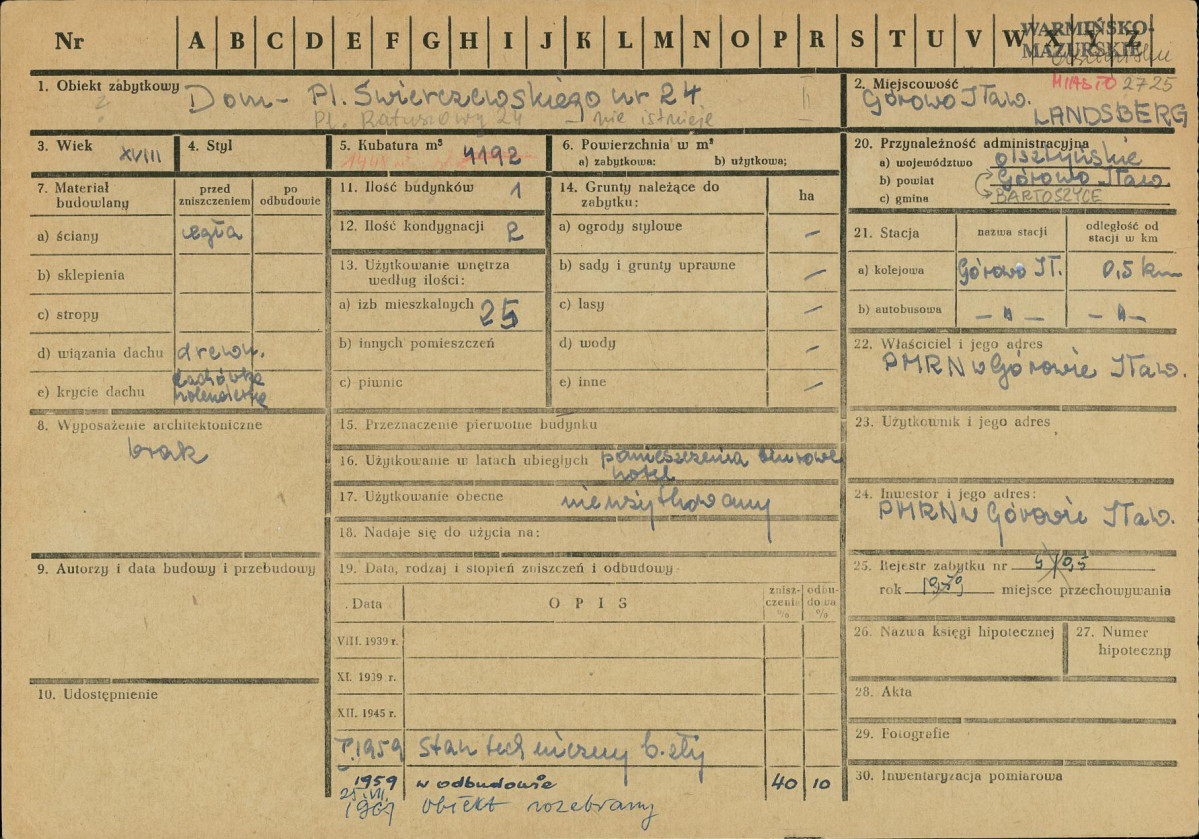 Nr A B C D E F G H I J K L M N O P R S T U V W X Y Z
WARMIŃSKO-
MAZURSKIE
1. Obiekt zabytkowy Dom - Pl. Świerczewskiego nr 24 II
Pl. Ratuszowy 24 - nie istnieje
2. Miejscowość MIASTO 2725
Górowo Iław.
LANDSBERG
3. Wiek XVIII
4. Styl
5. Kubatura m³ 4192
6. Powierzchnia w m²
a) zabytkowa: b) użytkowa;
20. Przynależność administracyjna
a) województwo olsztyńskie
b) powiat Górowo Iław.
c) gmina BARTOSZYCE
7. Materiał budowlany
przed zniszczeniem
po odbudowie
a) ściany cegła
b) sklepienia
c) stropy
d) wiązania dachu drewn.
e) krycie dachu dachówka
holenderka
11. Ilość budynków 1
12. Ilość kondygnacji 2
13. Użytkowanie wnętrza
według ilości:
a) izb mieszkalnych 25
b) innych pomieszczeń
c) piwnic
14. Grunty należące do
zabytku: ha
a) ogrody stylowe –
b) sady i grunty uprawne –
c) lasy –
d) wody –
e) inne –
21. Stacja
nazwa stacji
odległość od
stacji w km
a) kolejowa Górowo Ił. 0,5 km
b) autobusowa – " – – " –
22. Właściciel i jego adres
PMRN w Górowie Iław.
8. Wyposażenie architektoniczne
brak
15. Przeznaczenie pierwotne budynku
16. Użytkowanie w latach ubiegłych pomieszczenia biurowe
hotel
17. Użytkowanie obecne nieużytkowany
18. Nadaje się do użycia na:
23. Użytkownik i jego adres
24. Inwestor i jego adres:
PMRN w Górowie Iław.
9. Autorzy i data budowy i przebudowy
10. Udostępnienie
19. Data, rodzaj i stopień zniszczeń i odbudowy
Data OPIS
znisz-
czenie
%
odbu-
dowa
%
VIII. 1939 r.
XI. 1939 r.
XII. 1945 r.
1959 stan techniczny b. zły
1959 w odbudowie 40 10
obiekt rozebrany
25. Rejestr zabytku nr
rok miejsce przechowywania
26. Nazwa księgi hipotecznej
27. Numer
hipoteczny
28. Akta
29. Fotografie
30. Inwentaryzacja pomiarowa